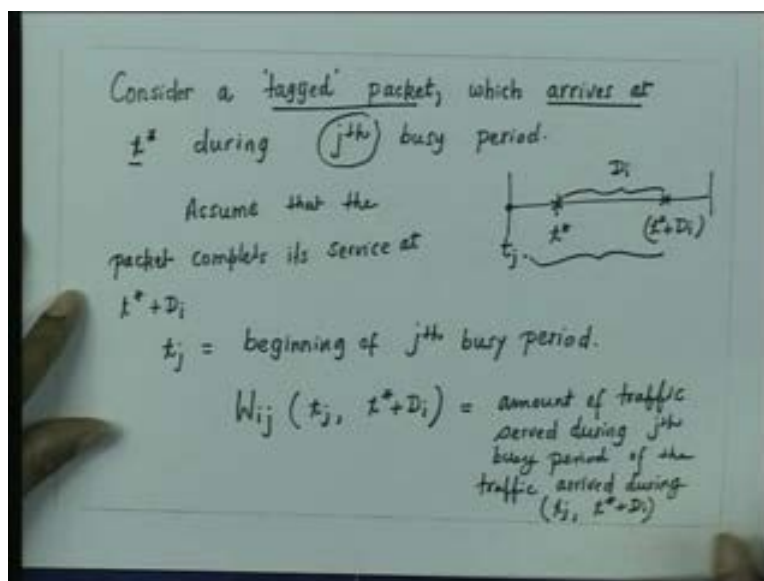 Consider a 'tagged' packet, which arrives at
t* during jth busy period.
Di
Assume that the
tj t* (t*+Di)
packet complets its service at
t*+Di
tj = beginning of jth busy period.
Wij (tj, t*+Di) = amount of traffic
served during jth
busy period of the
traffic arrived during
(tj, t*+Di)